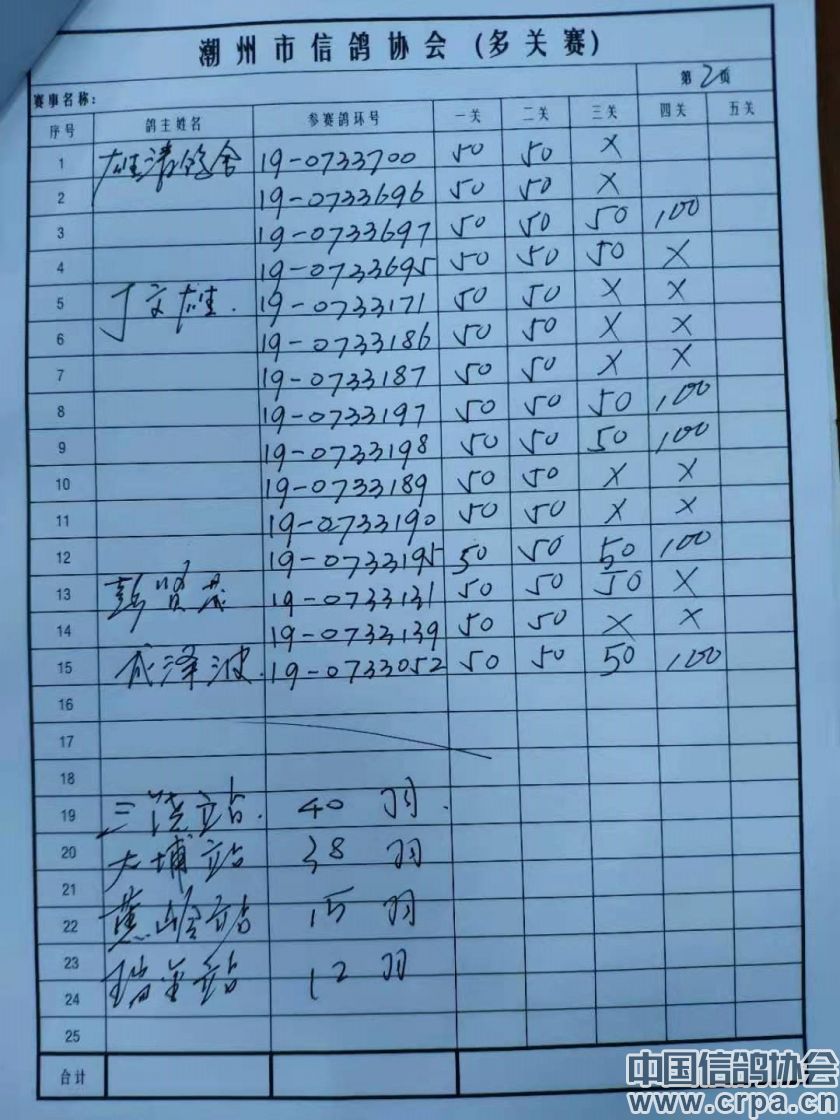 潮州市信鸽协会(多关赛)
赛事名称: 第2页
序号 鸽主姓名 参赛鸽环号 一关 二关 三关 四关 五关
1 雄清鸽舍 19-0733700 50 50 X
2 19-0733696 50 50 X
3 19-0733697 50 50 50 100
4 19-0733695 50 50 50 X
5 丁文雄. 19-0733171 50 50 X X
6 19-0733186 50 50 X X
7 19-0733187 50 50 X X
8 19-0733197 50 50 50 100
9 19-0733198 50 50 50 100
10 19-0733189 50 50 X X
11 19-0733190 50 50 X X
12 19-0733195 50 50 50 100
13 彭贤茂 19-0733131 50 50 50 X
14 19-0733139 50 50 X X
15 泽波. 19-0733052 50 50 50 100
16
17
18
19 三饶站. 40 羽.
20 大埔站 38 羽
21
22 蕉岭站 15 羽
23
24 瑞金站 12 羽
25
合计
中国信鸽协会
www.crpa.cn